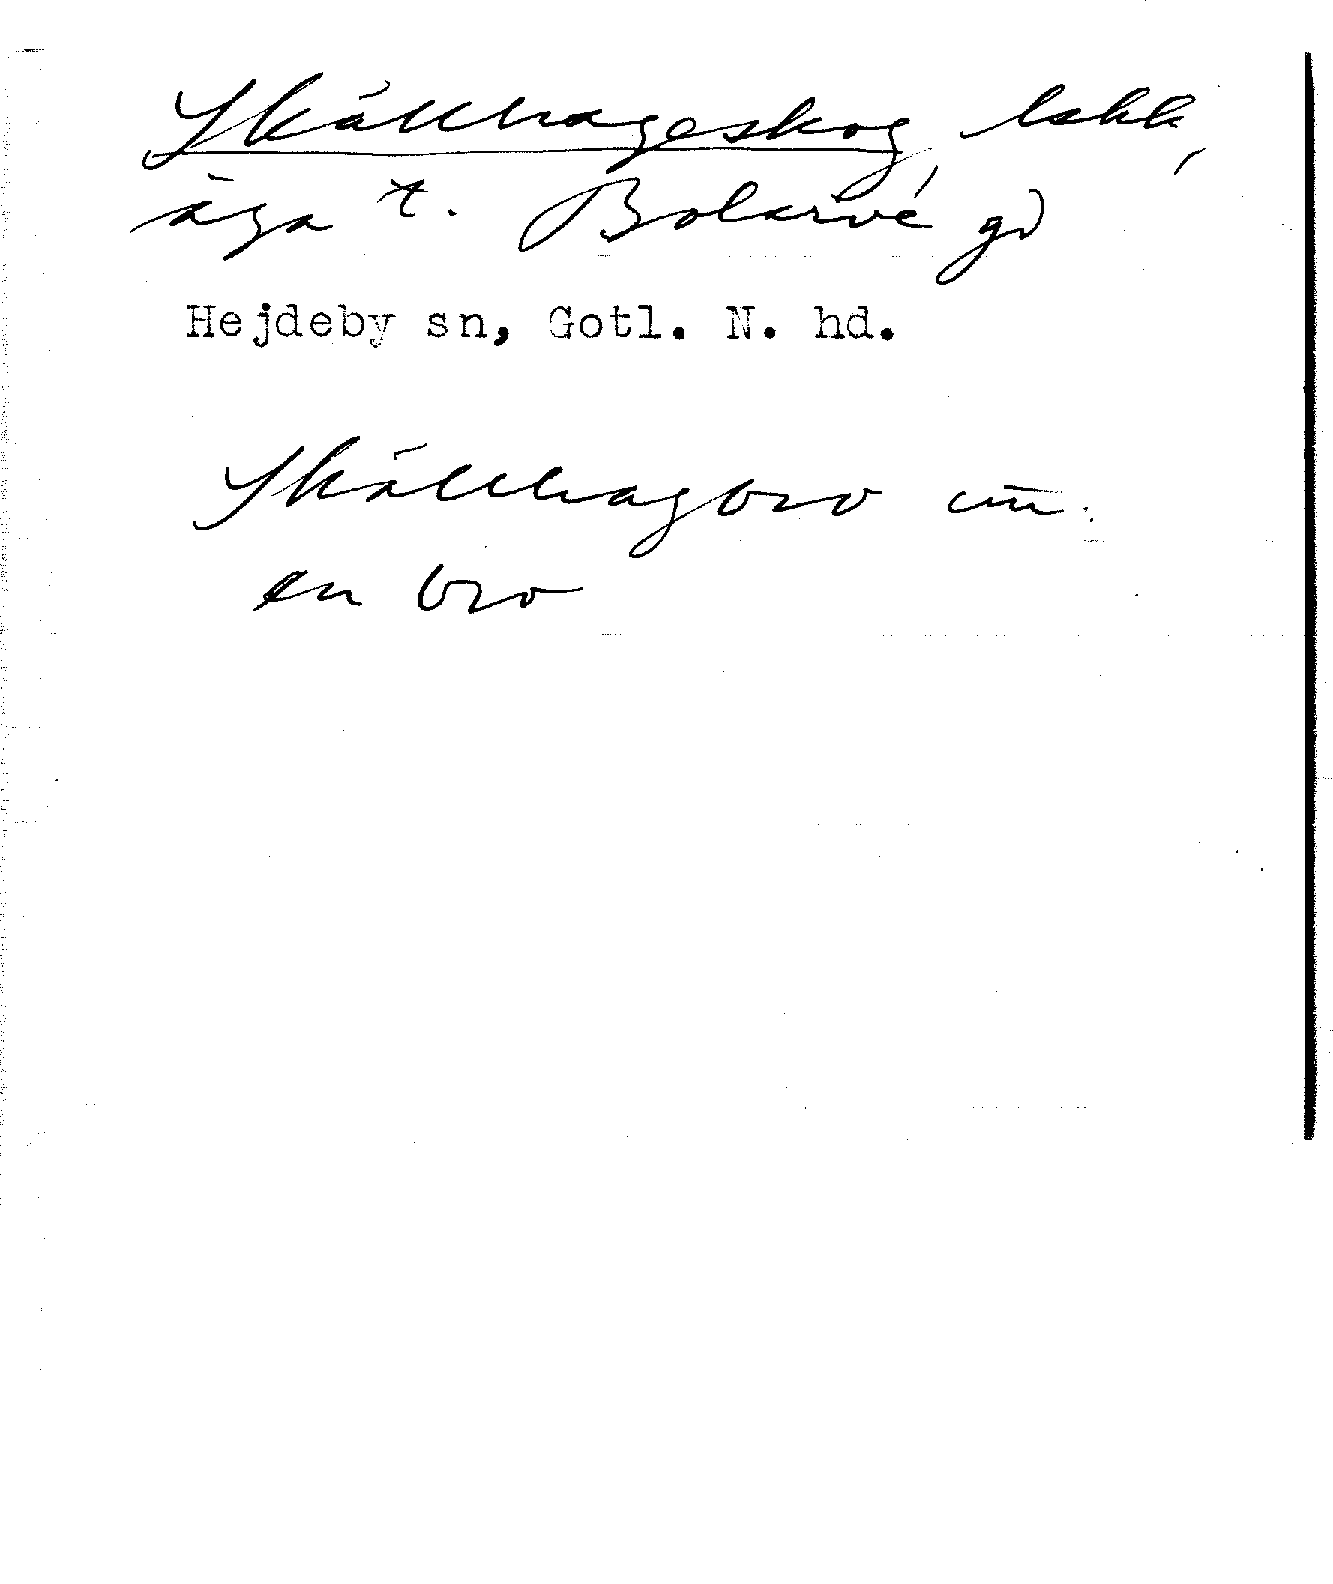 Skällhageskog, lskk,
äga t. Bolarve gd
Hejdeby sn, Gotl. N. hd.
Skällhagbro
en bro